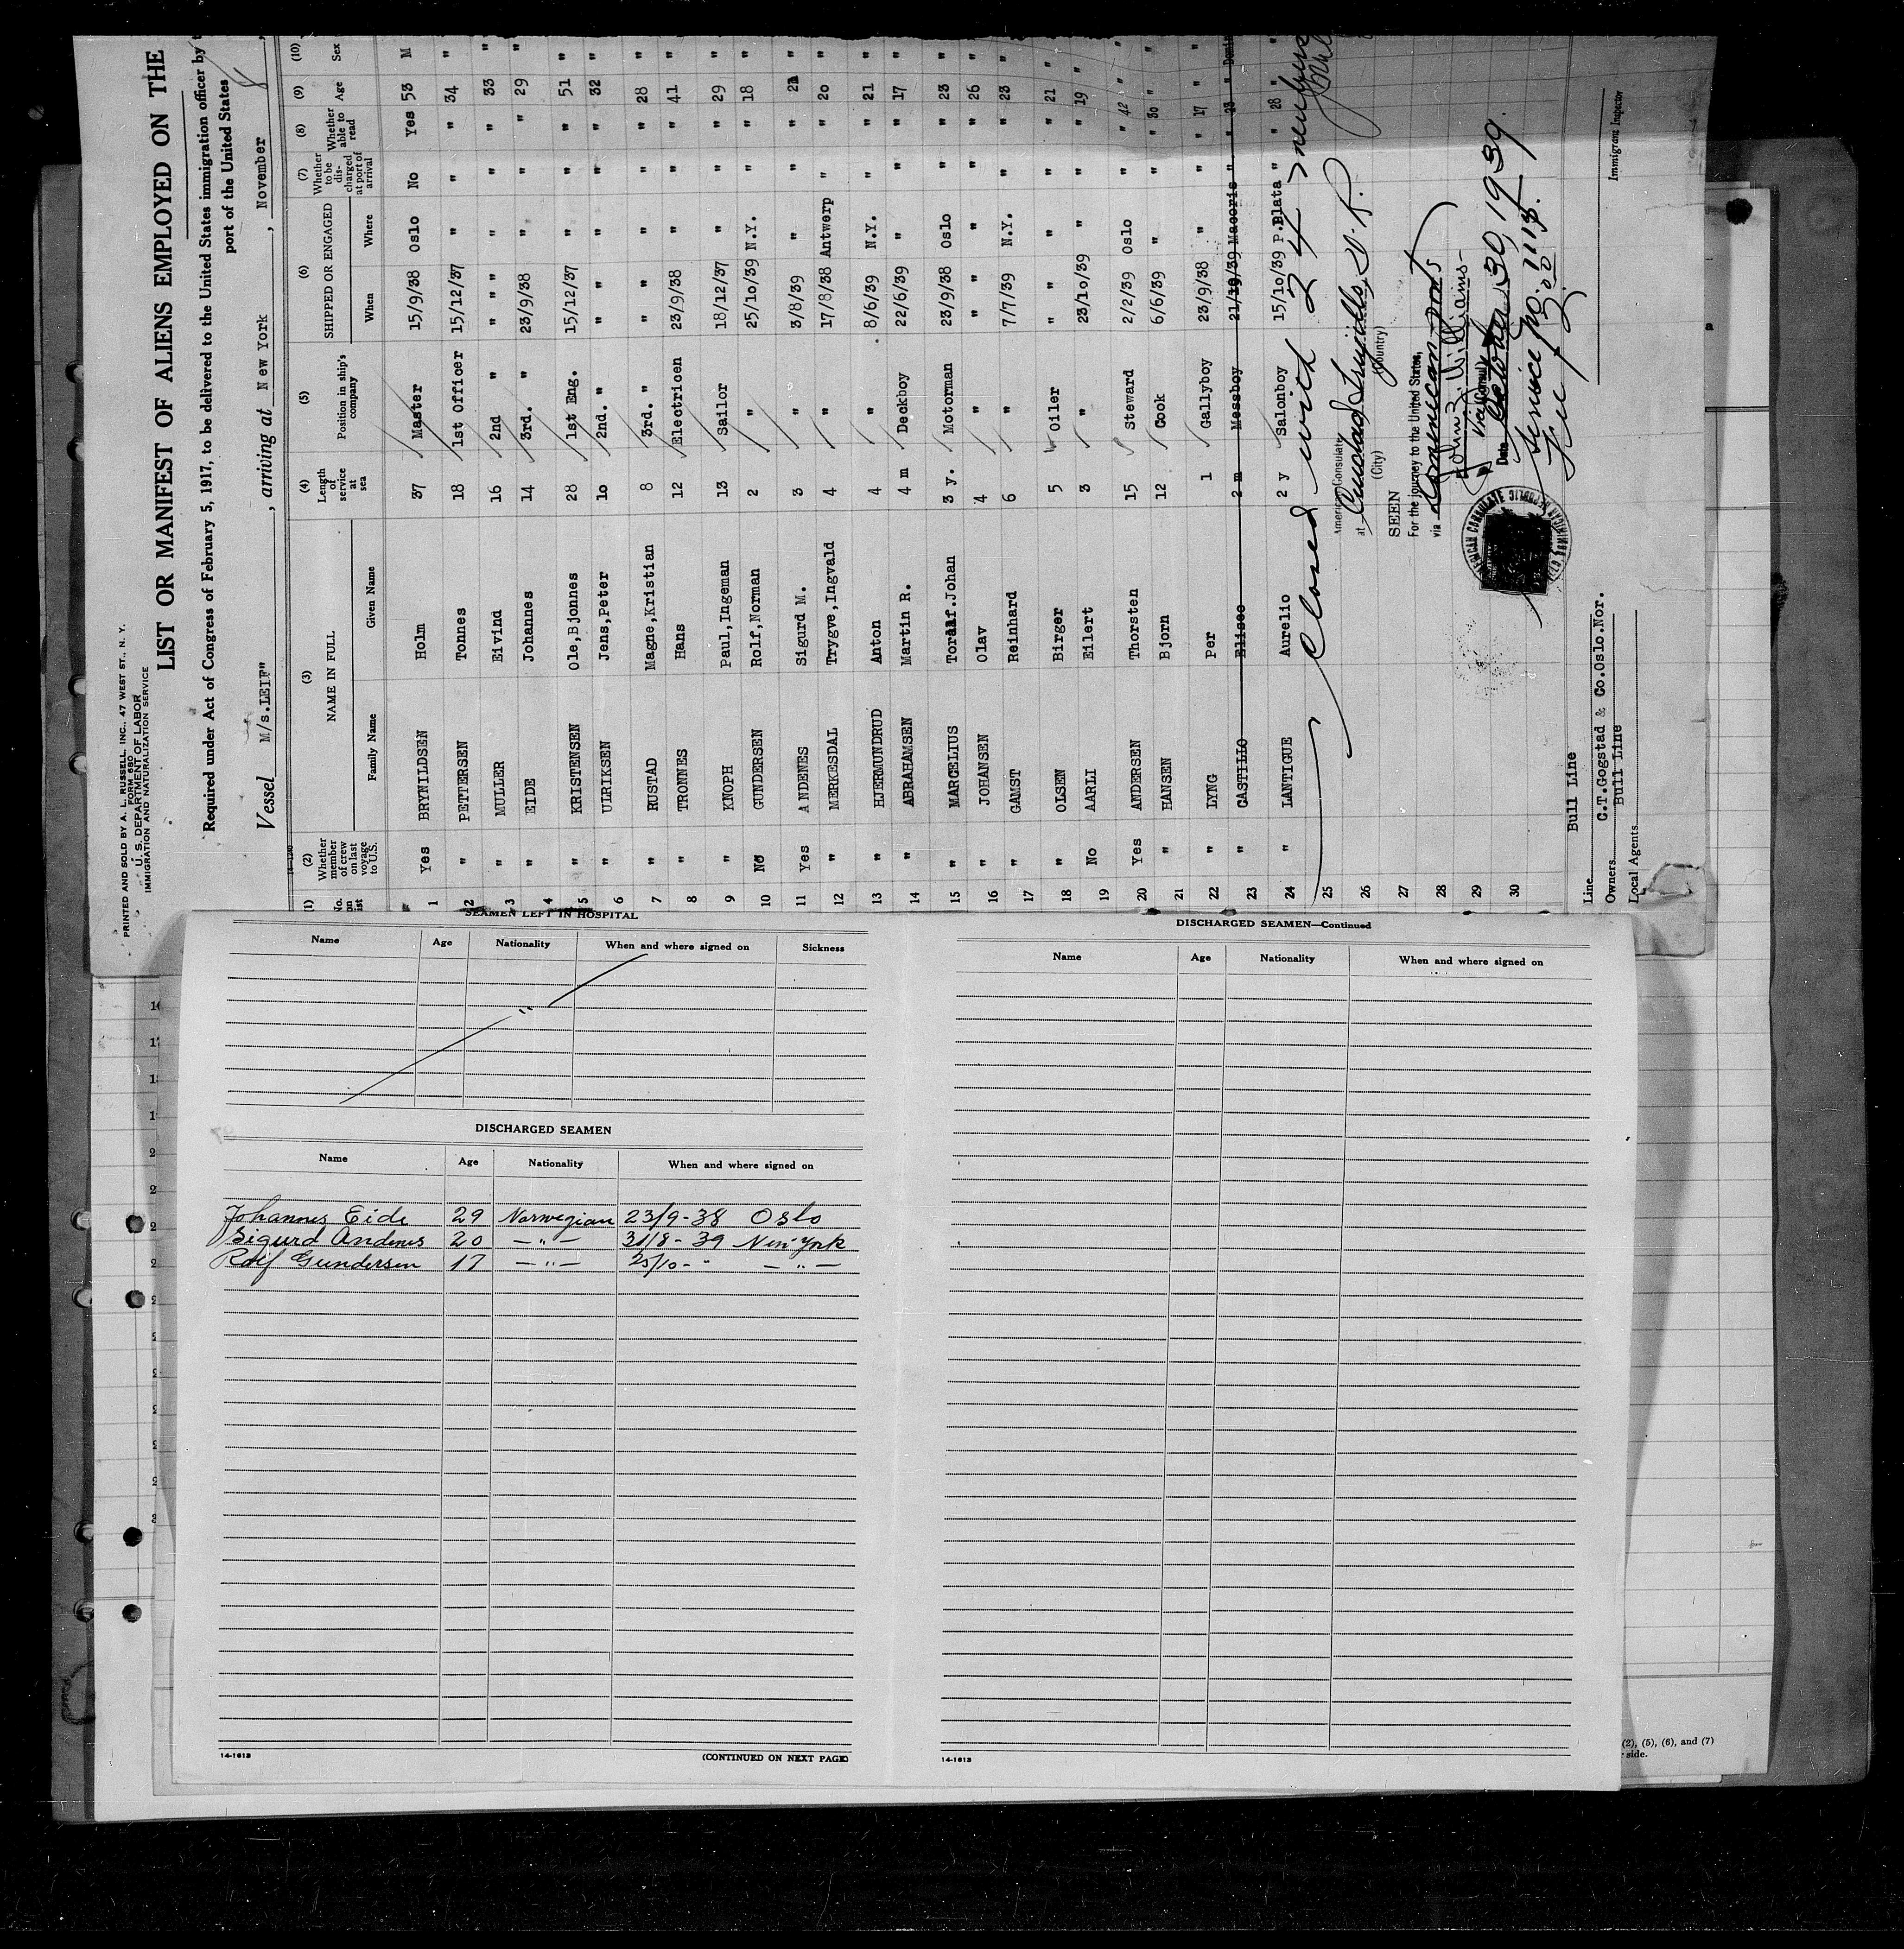 PRINTED AND SOLD BY A. L. RUSSELL, INC., 47 WEST ST., N. Y.
FORM 680
U. S. DEPARTMENT OF LABOR
IMMIGRATION AND NATURALIZATION SERVICE
LIST OR MANIFEST OF ALIENS EMPLOYED ON THE
Required under Act of Congress of February 5, 1917, to be delivered to the United States immigration officer by
port of the United States
Vessel M/s.LEIF" , arriving at New York , November
(1) (2) (3) (4) (5) (6) (7) (8) (9) (10)
No. on list Whether member of crew on last voyage to U.S. NAME IN FULL Length of service at sea Position in ship's company SHIPPED OR ENGAGED Whether to be discharged at port of arrival Whether able to read Age Sex
Family Name Given Name When Where
1 Yes BRYNILDSEN Holm 37 Master 15/9/38 Oslo No Yes 53 M
2 " PETTERSEN Tonnes 18 1st Officer 15/12/37 " " " 34 "
3 " MULLER Eivind 16 2nd " " " " " " 33 "
4 " EIDE Johannes 14 3rd. " 23/9/38 " " " 29 "
5 " KRISTENSEN Ole,Bjonnes 28 1st Eng. 15/12/37 " " " 51 "
6 " ULRIKSEN Jens,Peter 10 2nd. " " " " " 32 "
7 " RUSTAD Magne,Kristian 8 3rd. " " " " " 28 "
8 " TRONNES Hans 12 Electricen 23/9/38 " " " 41 "
9 " KNOPH Paul,Ingeman 13 Sailor 18/12/37 " " " 29 "
10 No GUNDERSEN Rolf,Norman 2 " 25/10/39 N.Y. " " 18 "
11 Yes ANDENES Sigurd M. 3 " 3/8/39 " " " 21 "
12 " MERKESDAL Trygve,Ingvald 4 " 17/8/38 Antwerp " " 20 "
13 " HJERMUNDRUD Anton 4 " 8/6/39 N.Y. " " 21 "
14 " ABRAHAMSEN Martin R. 4 m Deckboy 22/6/39 " " " 17 "
15 " MARCELIUS Johan 3 y. Motorman 23/9/38 Oslo " " 23 "
16 " JOHANSEN Olav 4 " " " " " 26 "
17 " GAMST Reinhard 6 " 7/7/39 N.Y. " " 23 "
18 " OLSEN Birger 5 Oiler " " " " 21 "
19 No AARLI Eilert 3 " 23/10/39 " " " 19 "
20 Yes ANDERSEN Thorsten 15 Steward 2/2/39 Oslo " " 42 "
21 " HANSEN Bjorn 12 Cook 6/6/39 " " " 30 "
22 " LYNG Per 1 Gallyboy 23/9/38 " " " 17 "
23 " CASTILLO Eliseo 2 m Messboy 21/10/39 Macoris " " 23 "
24 " LANTIGUE Aurelio 2 y Salonboy 15/10/39 P.Plata " " 28 "
25
26
27
28
29
30
Closed with 24
American Consulate
at Ciudad Trujillo, D. R.
(City) (Country)
SEEN
For the journey to the United States,
via Dominican ports
John W. Williams
Vice Consul
Date October 30, 1939.
Service No. 1113.
Fee $2.00
AMERICAN CONSULATE
Line Bull Line
Owners C.T.Gogstad & Co.Oslo.Nor.
Local Agents Bull Line
Immigrant Inspector
SEAMEN LEFT IN HOSPITAL
Name Age Nationality When and where signed on Sickness
DISCHARGED SEAMEN
Name Age Nationality When and where signed on
Johannes Eide 29 Norwegian 23/9-38 Oslo
Sigurd Andenes 20 —"— 31/8-39 New York
Rolf Gundersen 17 —"— 25/10-" —"—
14-1613 (CONTINUED ON NEXT PAGE)
DISCHARGED SEAMEN—Continued
Name Age Nationality When and where signed on
14-1613
(2), (5), (6), and (7)
side.